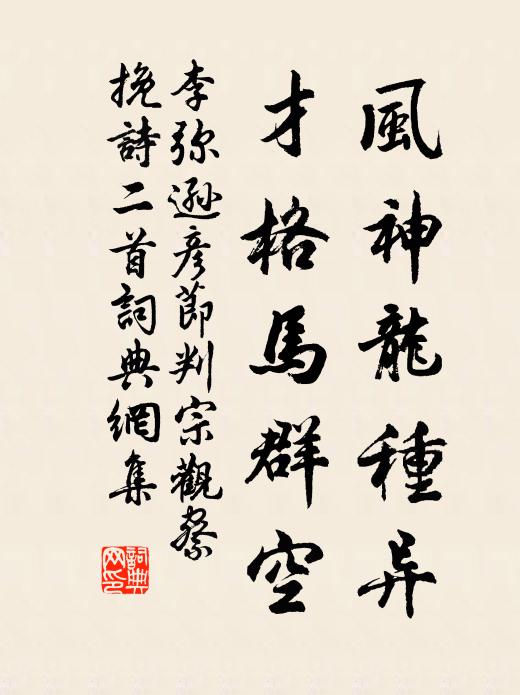 風神龍種异
才格馬群空
李弥遜彦節判宗觀察
挽詩二首詞典網集
詞典网印